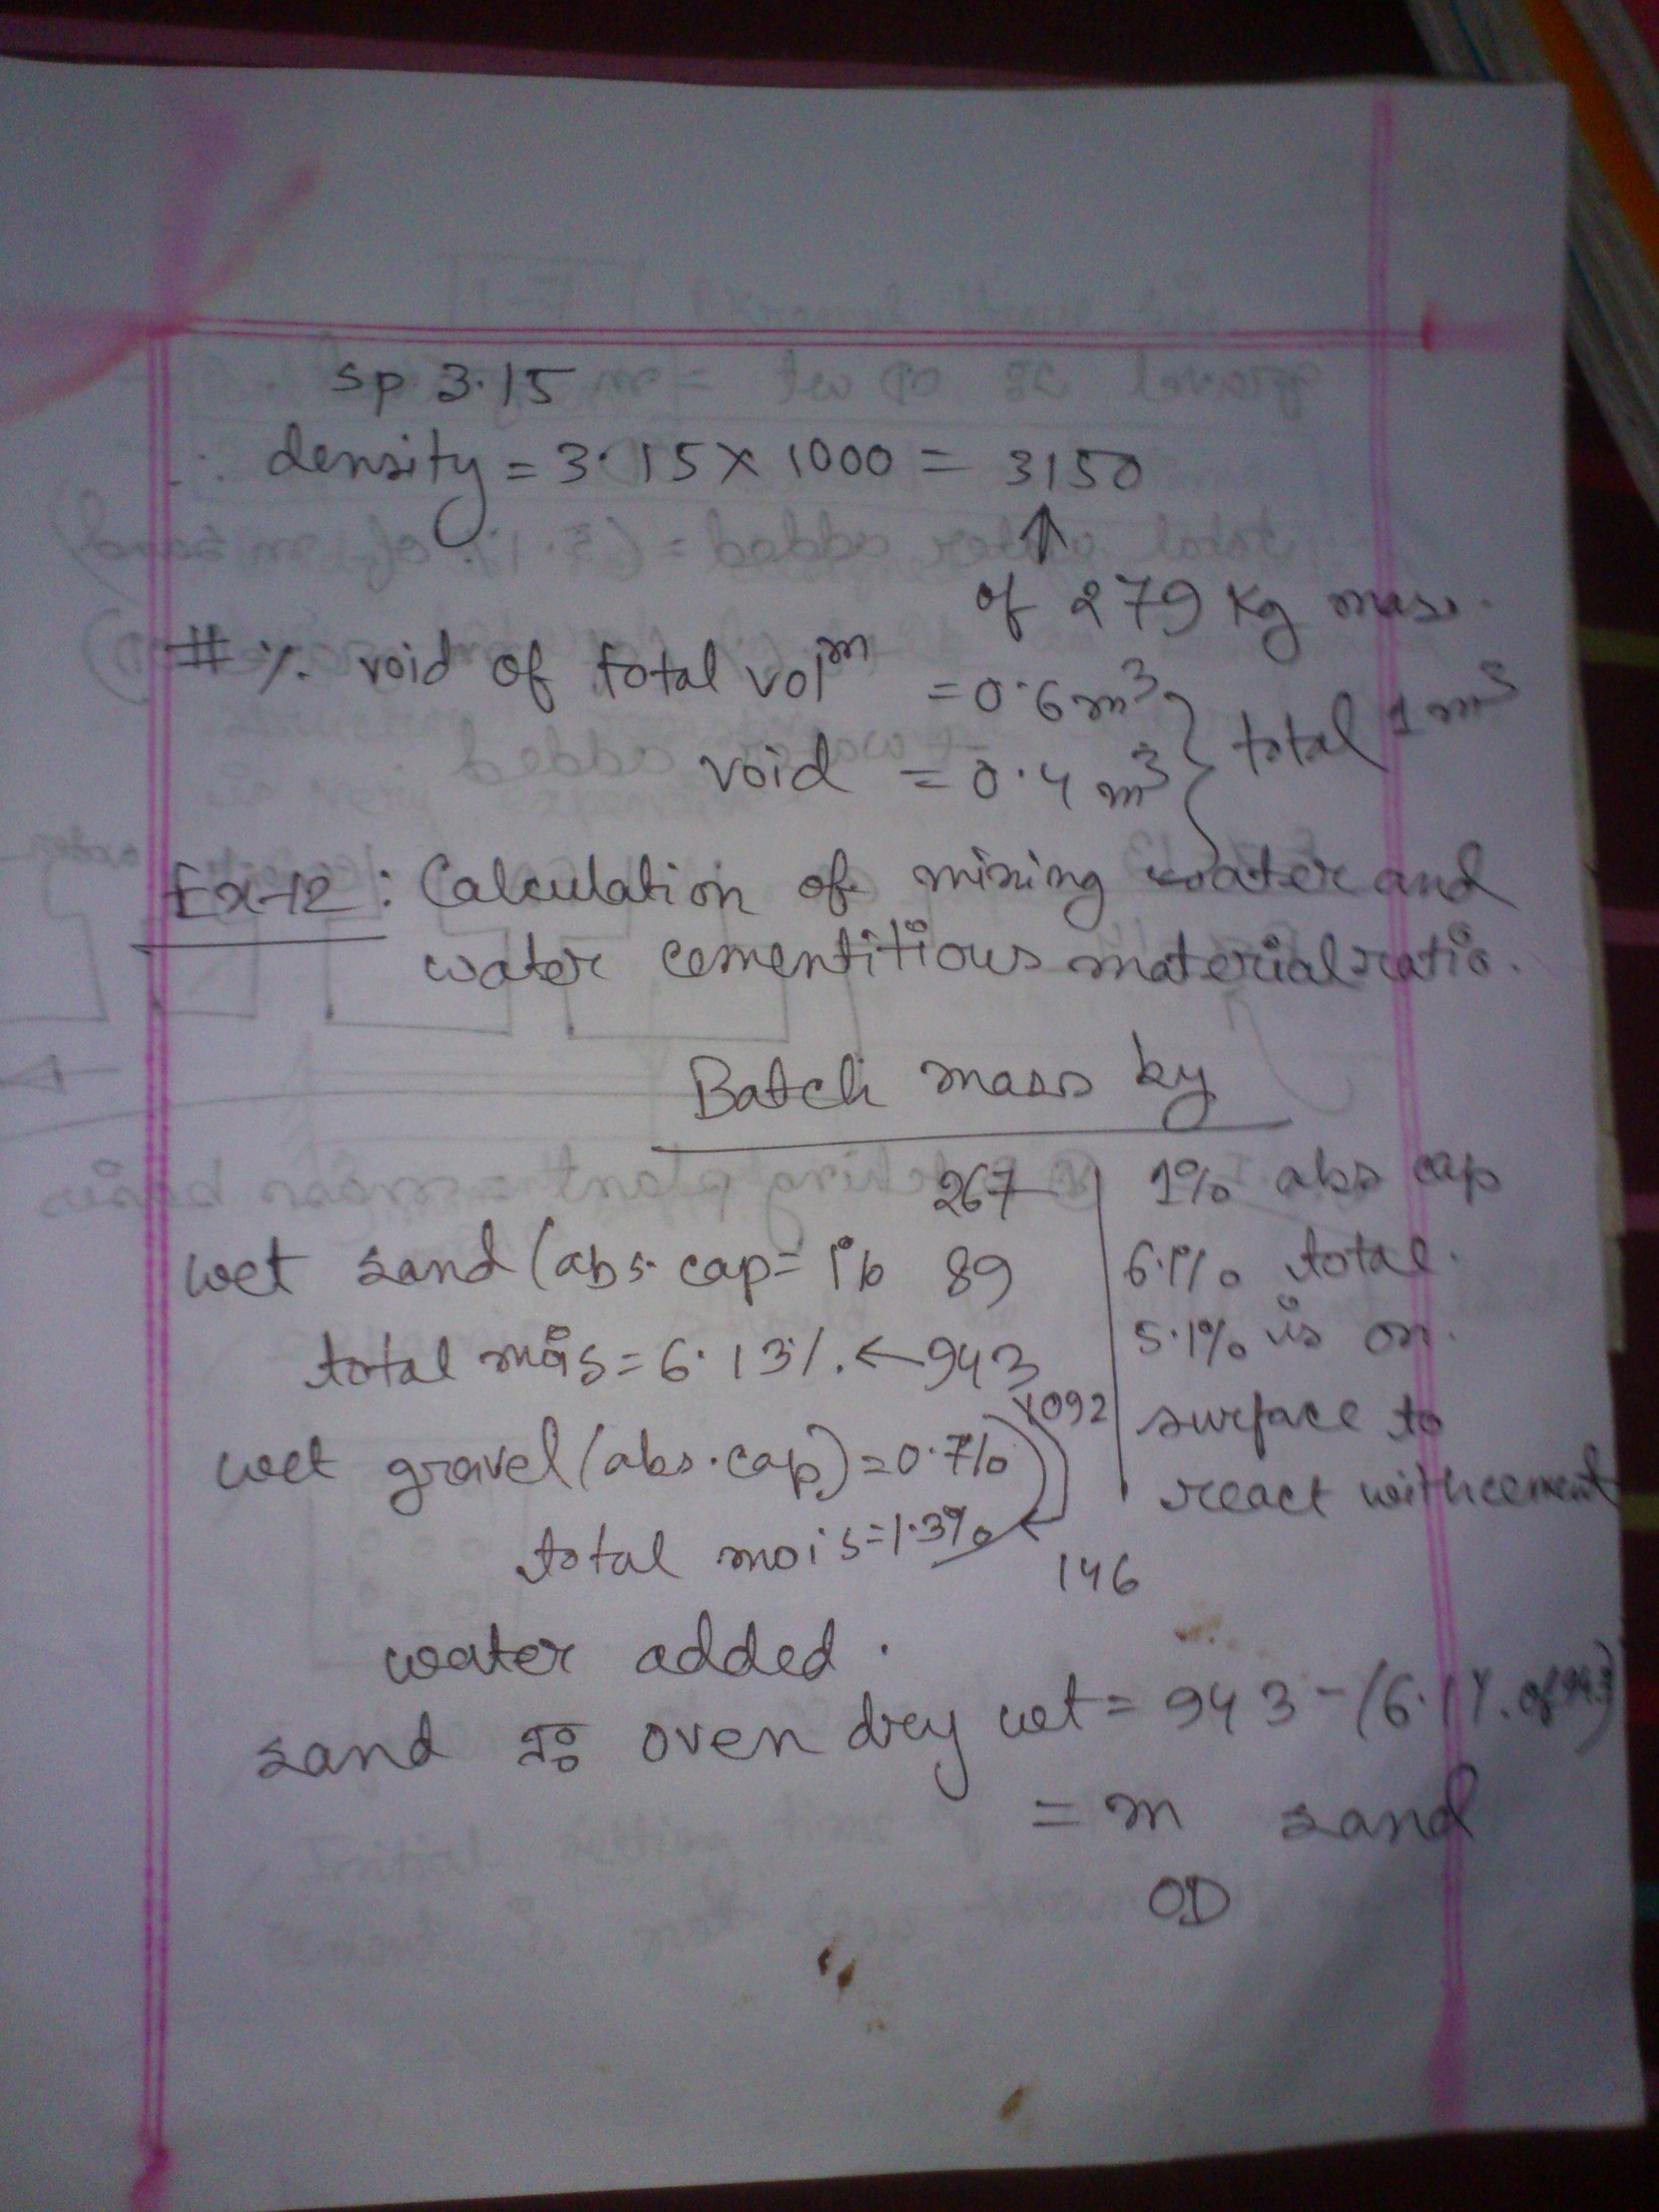 sp 3.15
∴ density = 3.15 × 1000 = 3150
↑
of 279 kg mass.
# % void of total vol^m = 0.6 m³ } total 1 m³
void = 0.4 m³
Ex-12 : Calculation of mixing water and
water cementitious material ratio.
Batch mass by
267 | 1% abs cap
wet sand (abs. cap = 1% 89 | 6.1% total.
total mois = 6.13%. ← 943 | 5.1% is on.
1092 | surface to
wet gravel (abs. cap) = 0.7% | react with cement
total mois = 1.3% ←
146
water added.
sand is oven dry wet = 943 - (6.1%. of 943)
= m sand
OD